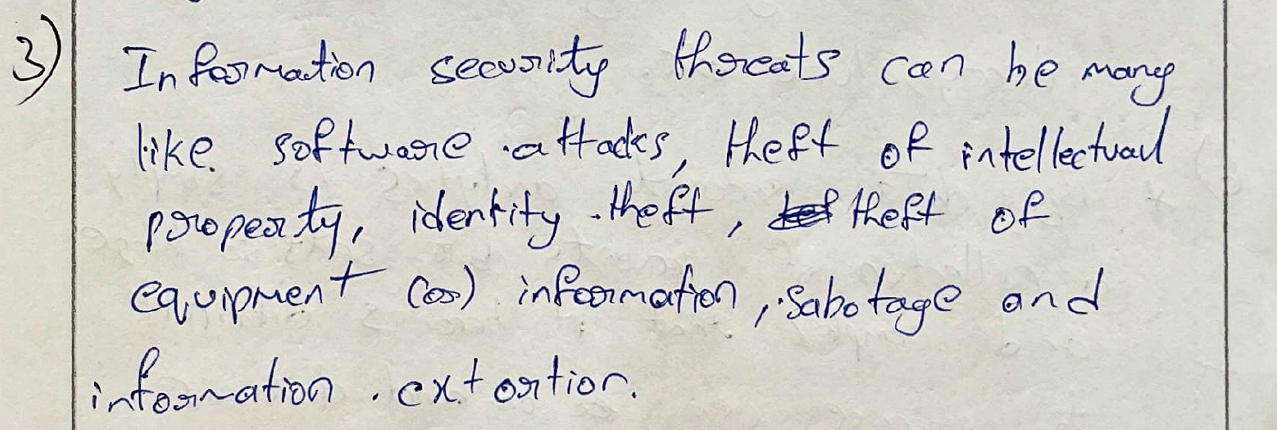 3) Information security threats can be many
like software attacks, theft of intellectual
property, identity theft, theft of
equipment (or) information, sabotage and
information extortion.